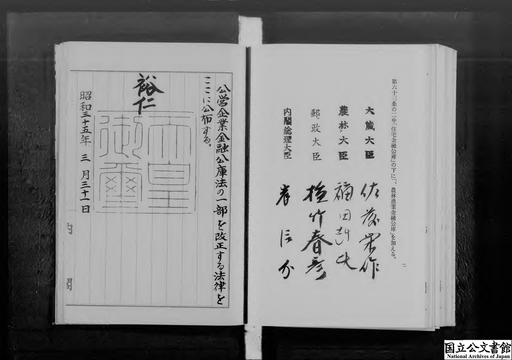 第六十三条の二中「住宅金融公庫」の下に「、農林漁業金融公庫」を加える。
二
大蔵大臣 佐藤栄作
農林大臣 福田赳夫
郵政大臣 植竹春彦
内閣総理大臣 岸信介
公営企業金融公庫法の一部を改正する法律を
ここに公布する。
裕仁
天皇
御璽
昭和三十五年三月三十一日
国立公文書館
National Archives of Japan